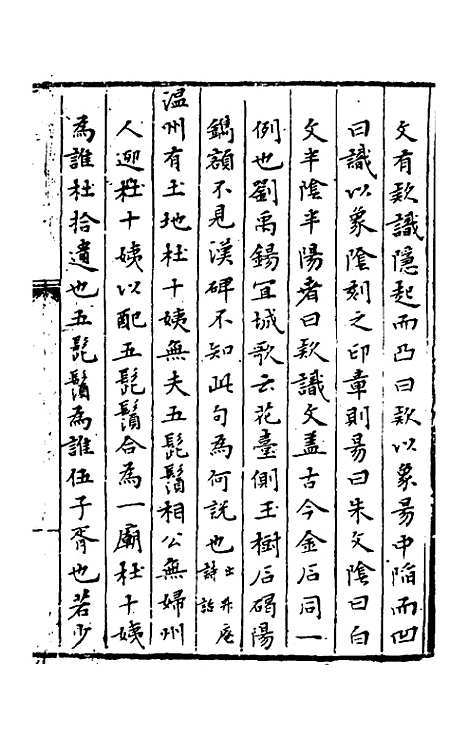 文有欵識隱起而凸曰欵以象昜中陷而凹
曰識以象隂刻之印章則昜曰朱文隂曰白
文半隂半陽者曰欵識文盖古今金石同一
例也劉禹錫冝城歌云花臺側玉樹石碣陽
鐫額不見漢碑不知此句為何說也出升庵詩話
温州有土地杜十姨無夫五髭鬚相公無婦州
人迎杜十姨以配五髭鬚合為一廟杜十姨
為誰杜拾遺也五髭鬚為誰伍子胥也若少